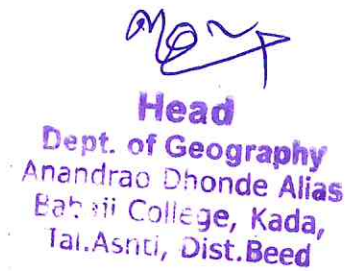 Head
Dept. of Geography
Anandrao Dhonde Alias
Babaji College, Kada,
Tal.Ashti, Dist.Beed